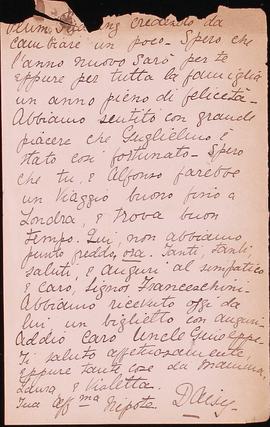 credendo da
cambiare un poco – Spero che
l'anno nuovo sarò per te
eppure per tutta la famiglia
un anno pieno di felicità –
Abbiamo sentito con grande
piacere che Guglielmo è
stato così fortunato – Spero
che tu, e Alfonso farebbe
un Viaggio buono fino a
Londra, e trova buon
tempo. Qui, non abbiamo
punto freddo, osa. Tanti, tanti,
saluti, e auguri al simpatico
e caro, Signor Franceschini.
Abbiamo ricevuto oggi da
lui un biglietto con auguri.
Addio Caro Uncle Guiseppe
Ti saluto affetuosamente,
eppure tanti cose da Mamma,
Laura, e Violetta.
Tua affma Nipote. Daisy.